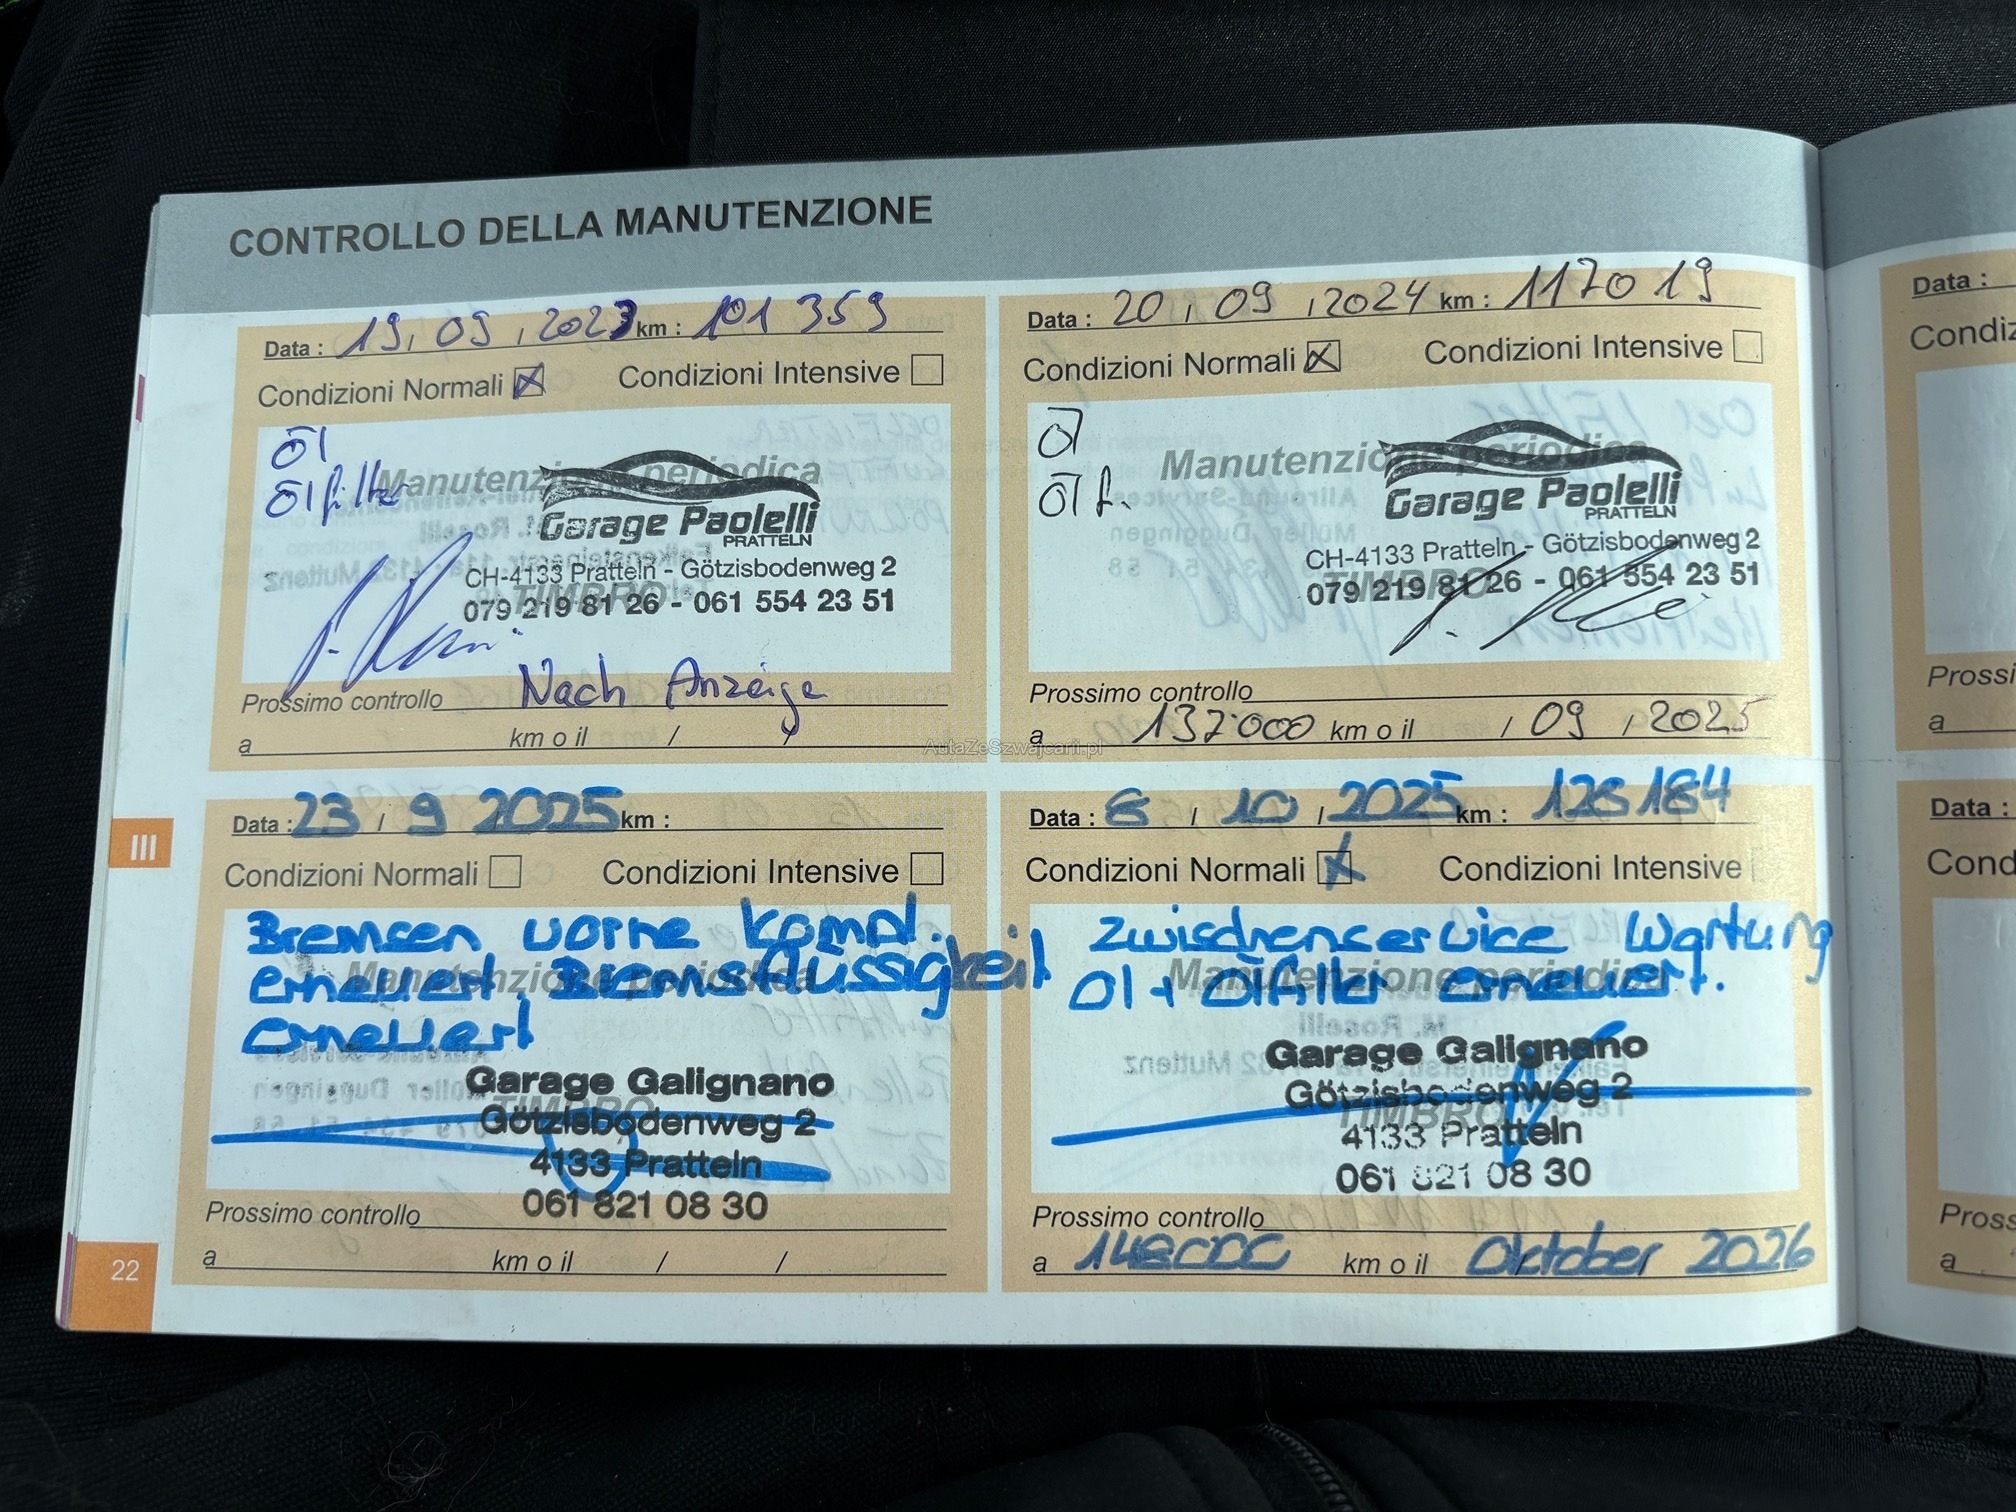 CONTROLLO DELLA MANUTENZIONE
Data : 19. 09 . 2023 km : 101 359
Condizioni Normali Condizioni Intensive
Öl
Ölfilter
Manutenzione periodica
Garage Paolelli
PRATTELN
CH-4133 Pratteln - Götzisbodenweg 2
TIMBRO
079 219 81 26 - 061 554 23 51
Prossimo controllo Nach Anzeige
a km o il / /
Data : 20 . 09 . 2024 km : 117019
Condizioni Normali Condizioni Intensive
Öl
Ölf.
Manutenzione periodica
Garage Paolelli
PRATTELN
CH-4133 Pratteln - Götzisbodenweg 2
TIMBRO
079 219 81 26 - 061 554 23 51
Prossimo controllo
a 137000 km o il / 09 / 2025
AutaZeSzwajcarii.pl
Data : 23 / 9 2025 km :
Condizioni Normali Condizioni Intensive
Bremsen vorne kompl.
erneuert. Bremsflüssigkeit
Manutenzione periodica
erneuert
Garage Galignano
TIMBRO
Götzisbodenweg 2
4133 Pratteln
061 821 08 30
Prossimo controllo
a km o il / /
Data : 8 / 10 / 2025 km : 128184
Condizioni Normali Condizioni Intensive
Zwischenservice Wartung
Öl + Ölfilter erneuert.
Manutenzione periodica
Garage Galignano
Götzisbodenweg 2
TIMBRO
4133 Pratteln
061 821 08 30
Prossimo controllo
a 148000 km o il Oktober 2026
III
22
Data :
Condiz
Prossi
a
Data :
Cond
Pross
a